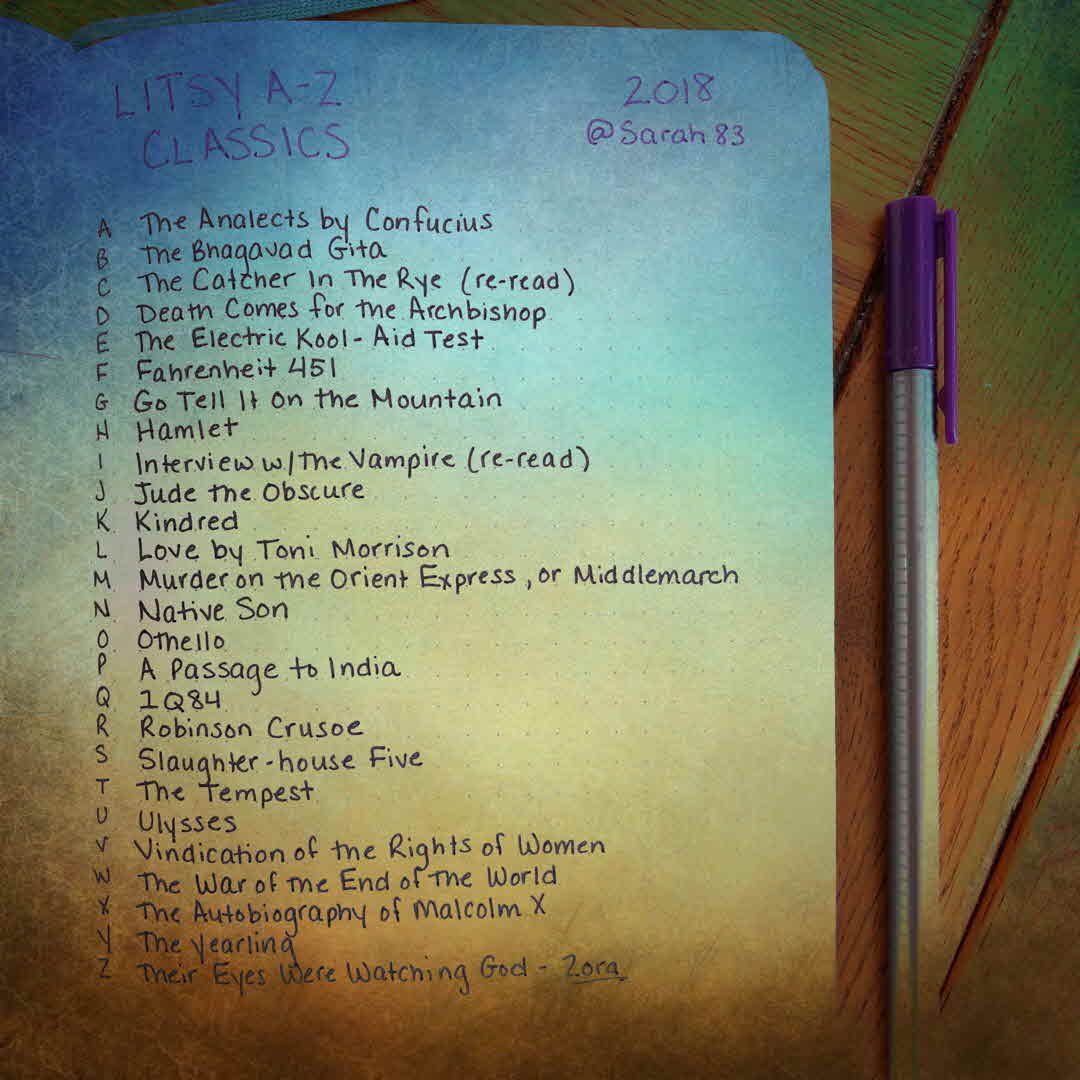 LITSY A-Z
CLASSICS
2018
@Sarah83
A The Analects by Confucius
B The Bhagavad Gita
C The Catcher In The Rye (re-read)
D Death Comes for the Archbishop
E The Electric Kool-Aid Test
F Fahrenheit 451
G Go Tell It On the Mountain
H Hamlet
I Interview w/The Vampire (re-read)
J Jude the Obscure
K Kindred
L Love by Toni Morrison
M Murder on the Orient Express, or Middlemarch
N Native Son
O Othello
P A Passage to India
Q 1Q84
R Robinson Crusoe
S Slaughter-house Five
T The Tempest
U Ulysses
V Vindication of the Rights of Women
W The War of the End of The World
X The Autobiography of Malcolm X
Y The Yearling
Z Their Eyes Were Watching God - Zora